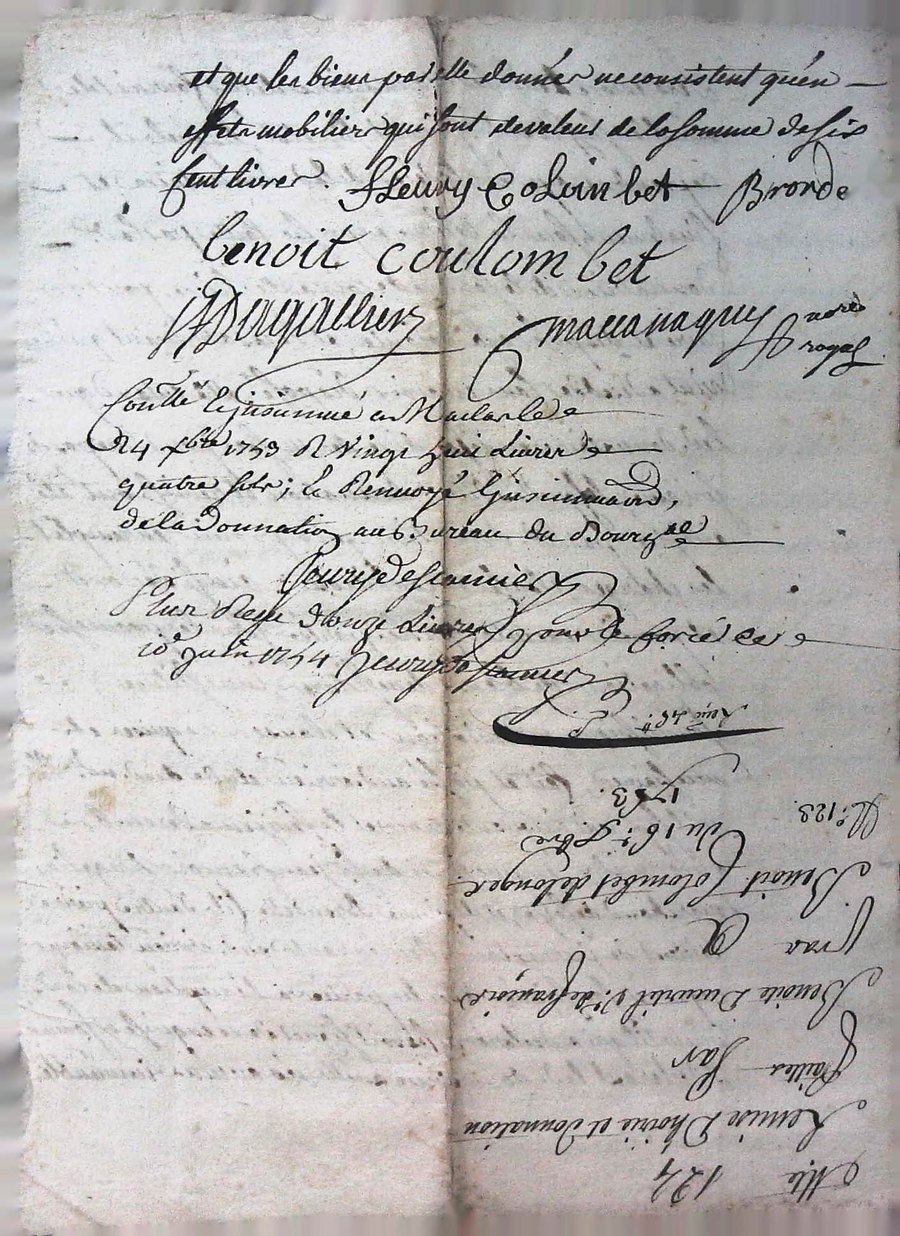 et que les biens par elle donnés ne consistent qu'en
effets mobiliers qui sont de valeur de la somme de six
cent livres. fleury Colombet Bronde
benoit coulombet
Dagallier maccanaquy nore
royal
Contllé & insinué a le
24 xbre 1753 R vingt huit Livres
quatre sols; & Renvoyé
de la donnation au Bureau du Bourg
Plus Reçu d'onze Livres pour le forcé ce
10e juin 1754
Cte 124
Remise Dhoirie et donnation
faittes Par
Benoite Ducurtil Ve. de françois
A
Benoit Colombet de longes
du 16e. 9bre
1753.
N°. 123